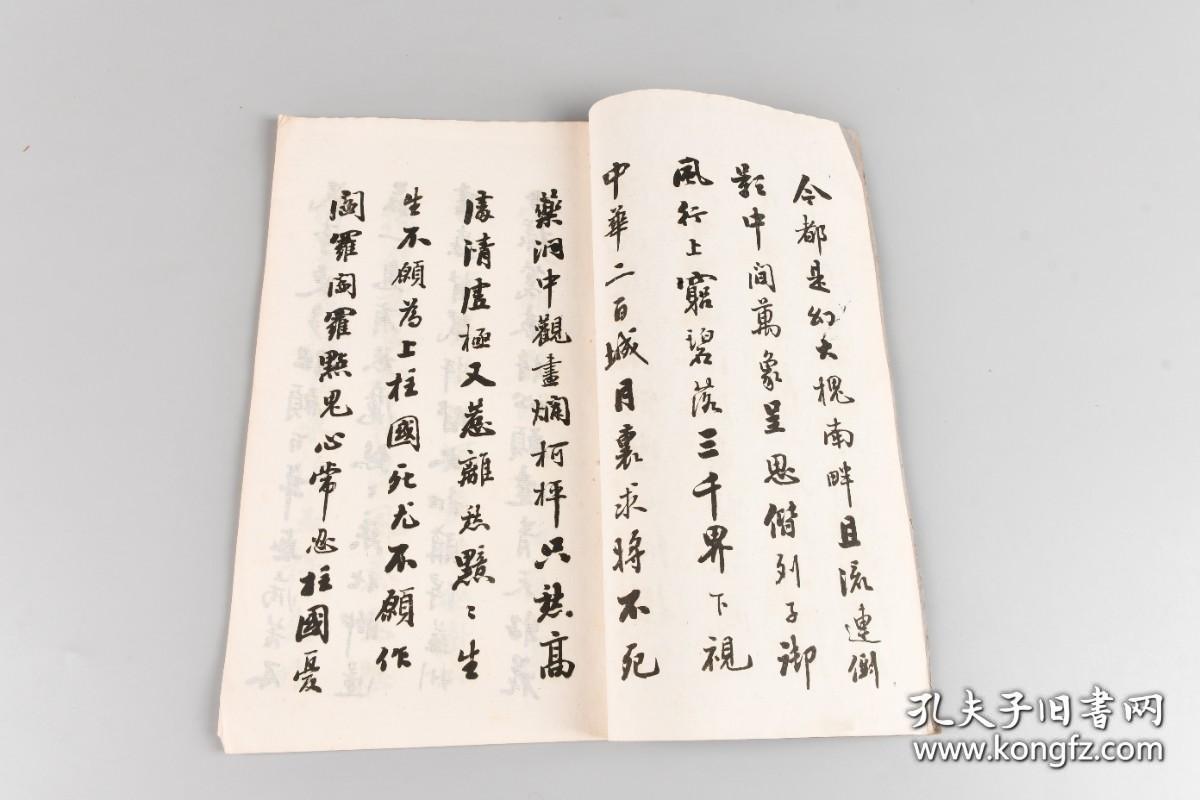 令都是幻大槐南畔且流連倒
影中間萬象呈思偕列子御
風行上窮碧落三千界下視
中華二百城月裏求將不死
藥洞中觀盡爛柯枰只愁高
處清虛極又惹離愁黯〻生
生不願為上柱國死尤不願作
閻羅閻羅點鬼心常忍柱國憂
孔夫子旧书网
www.kongfz.com